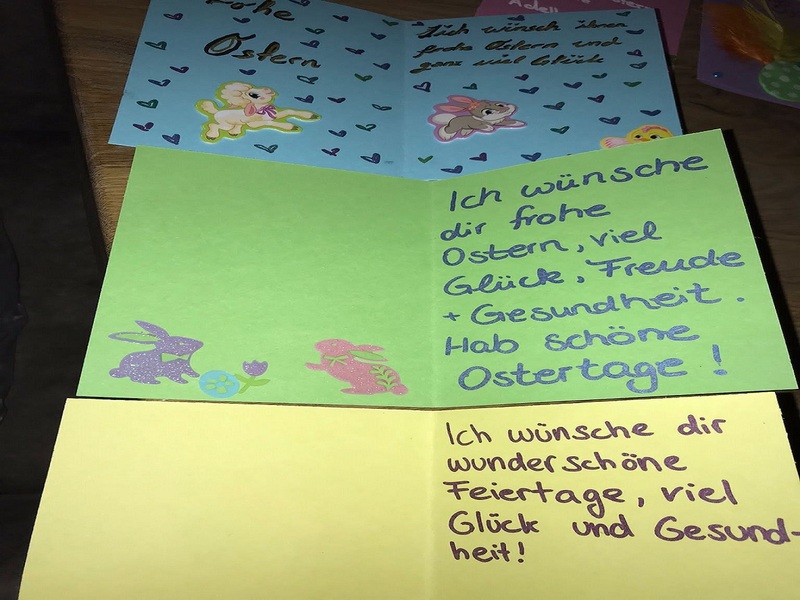 Frohe
Ostern
Ich wünsch ihnen
frohe Ostern und
ganz viel Glück
Adel
Ich wünsche
dir frohe
Ostern, viel
Glück, Freude
+ Gesundheit.
Hab schöne
Ostertage!
Ich wünsche dir
wunderschöne
Feiertage, viel
Glück und Gesund-
heit!